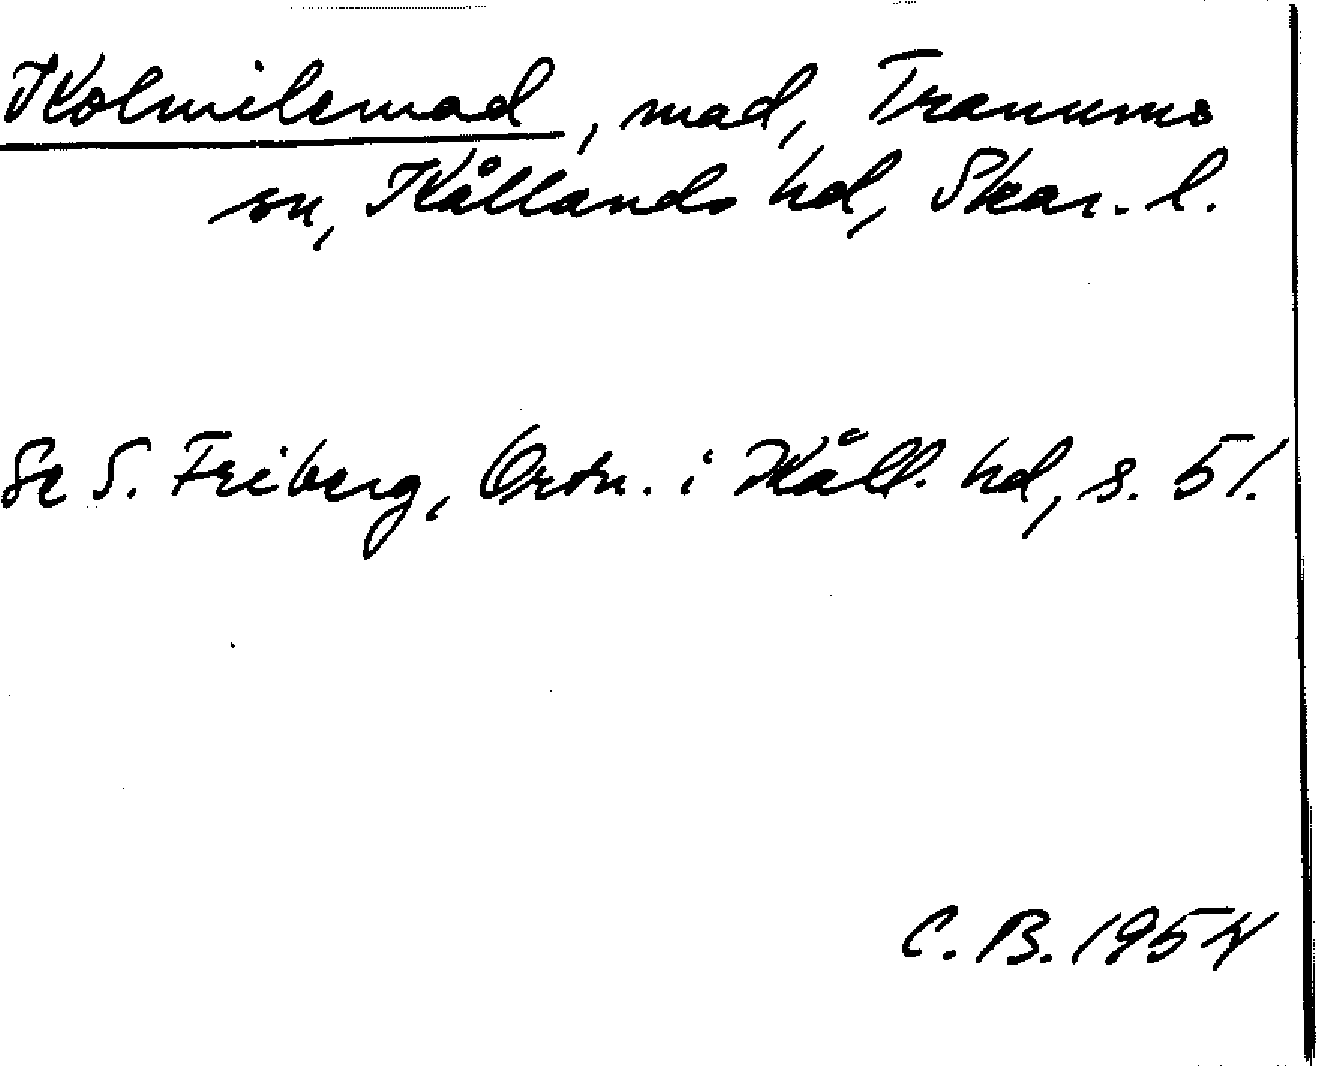 Kolmilemad, mad, Tranums
sn, Kållands hd, Skar. l.
Se S. Friberg, Ortn. i Kåll. hd, s. 51.
C. B. 1954